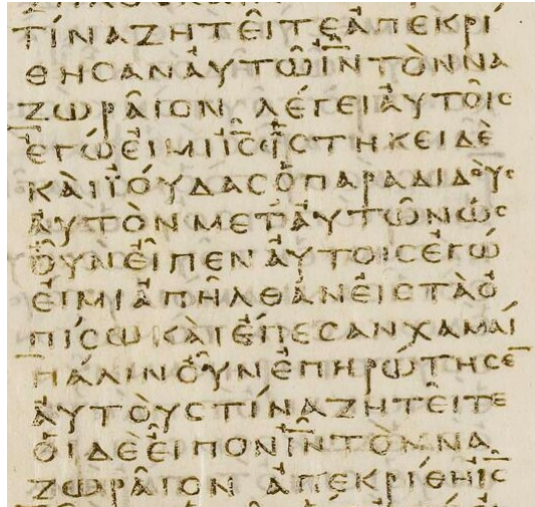 ΤΙΝΑΖΗΤΕΙΤΕΑΠΕΚΡΙ
ΘΗϹΑΝΑΥΤΩΙ̅Ν̅ΤΟΝΝΑ
ΖΩΡΑΙΟΝ ΛΕΓΕΙΑΥΤΟΙϹ
ΕΓΩΕΙΜΙΙ̅Ϲ̅ΙϹΤΗΚΕΙΔΕ
ΚΑΙΪΟΥΔΑϹΟΠΑΡΑΔΙΔΟΥϹ
ΑΥΤΟΝΜΕΤΑΥΤΩΝΩϹ
ΟΥΝΕΙΠΕΝΑΥΤΟΙϹΕΓΩ
ΕΙΜΙΑΠΗΛΘΑΝΕΙϹΤΑΟ
ΠΙϹΩΚΑΙΕΠΕϹΑΝΧΑΜΑΙ
ΠΑΛΙΝΟΥΝΕΠΗΡΩΤΗϹΕ̅
ΑΥΤΟΥϹΤΙΝΑΖΗΤΕΙΤΕ
ΟΙΔΕΕΙΠΟΝΙ̅Ν̅ΤΟΝΝΑ
ΖΩΡΑΙΟΝ ΑΠΕΚΡΙΘΗΙ̅Ϲ̅